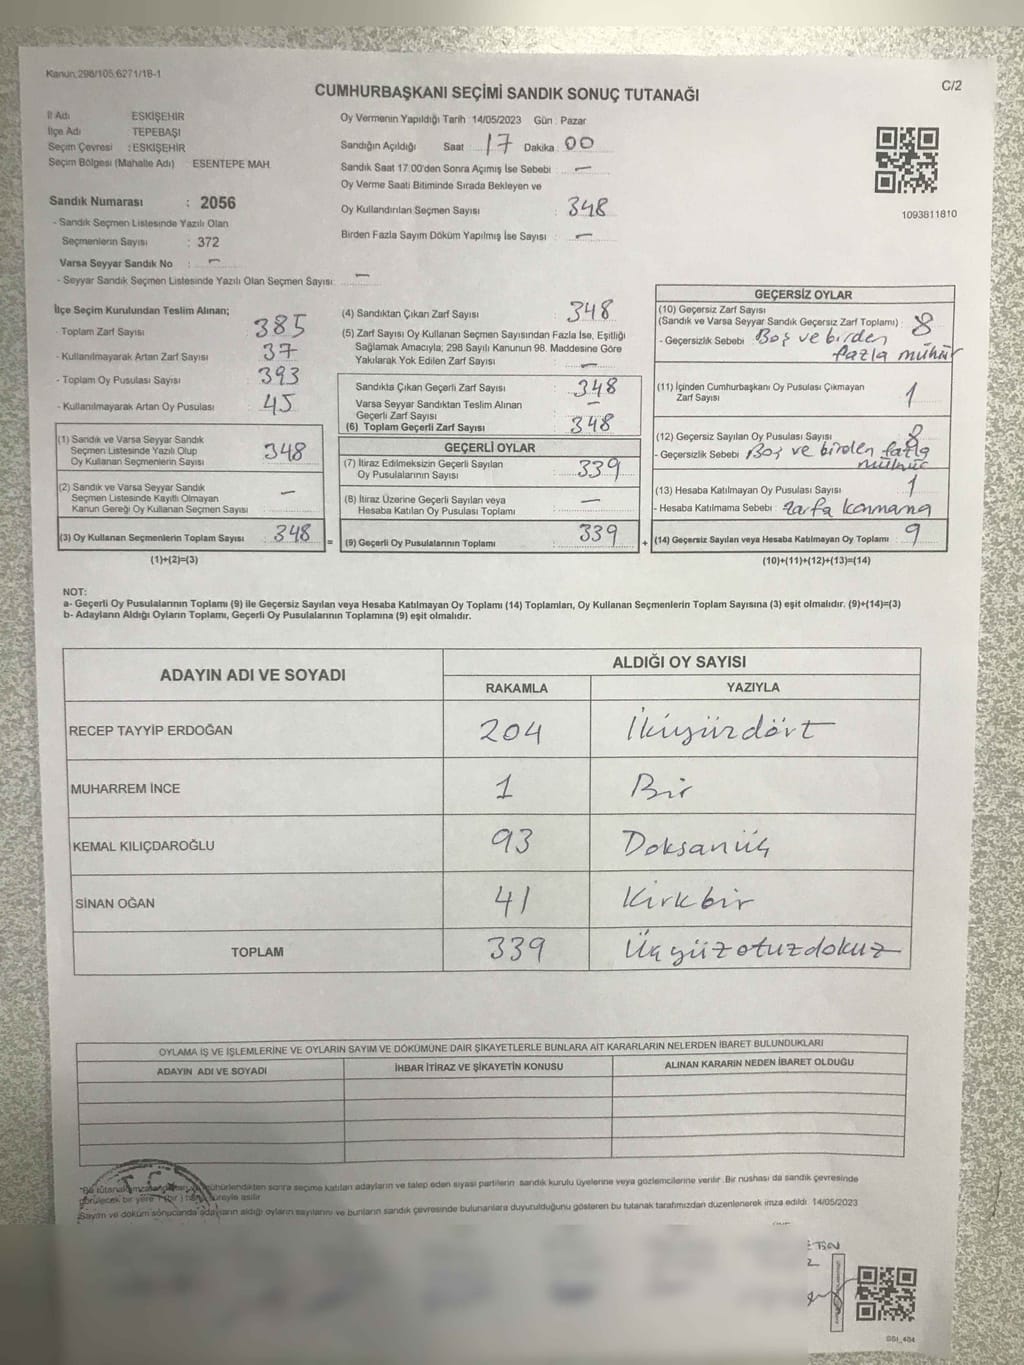 Kanun,298/105,6271/18-1
C/2
CUMHURBAŞKANI SEÇİMİ SANDIK SONUÇ TUTANAĞI
İl Adı ESKİŞEHİR
İlçe Adı : TEPEBAŞI
Seçim Çevresi : ESKİŞEHİR
Seçim Bölgesi (Mahalle Adı) ESENTEPE MAH.
Sandık Numarası : 2056
- Sandık Seçmen Listesinde Yazılı Olan
Seçmenlerin Sayısı : 372
Varsa Seyyar Sandık No : -
- Seyyar Sandık Seçmen Listesinde Yazılı Olan Seçmen Sayısı: -
Oy Vermenin Yapıldığı Tarih : 14/05/2023 Gün : Pazar
Sandığın Açıldığı Saat 17 Dakika : 00
Sandık Saat 17:00'den Sonra Açımış İse Sebebi : -
Oy Verme Saati Bitiminde Sırada Bekleyen ve
Oy Kullandırılan Seçmen Sayısı : 348
Birden Fazla Sayım Döküm Yapılmış İse Sayısı : -
1093811810
İlçe Seçim Kurulundan Teslim Alınan;
- Toplam Zarf Sayısı 385
- Kullanılmayarak Artan Zarf Sayısı 37
- Toplam Oy Pusulası Sayısı 393
- Kullanılmayarak Artan Oy Pusulası 45
(1) Sandık ve Varsa Seyyar Sandık
Seçmen Listesinde Yazılı Olup
Oy Kullanan Seçmenlerin Sayısı 348
(2) Sandık ve Varsa Seyyar Sandık
Seçmen Listesinde Kayıtlı Olmayan
Kanun Gereği Oy Kullanan Seçmen Sayısı -
(3) Oy Kullanan Seçmenlerin Toplam Sayısı : 348 =
(1)+(2)=(3)
(4) Sandıktan Çıkan Zarf Sayısı : 348
(5) Zarf Sayısı Oy Kullanan Seçmen Sayısından Fazla İse, Eşitliği
Sağlamak Amacıyla, 298 Sayılı Kanunun 98. Maddesine Göre
Yakılarak Yok Edilen Zarf Sayısı : -
Sandıkta Çıkan Geçerli Zarf Sayısı : 348
Varsa Seyyar Sandıktan Teslim Alınan
Geçerli Zarf Sayısı : -
(6) Toplam Geçerli Zarf Sayısı : 348
GEÇERLİ OYLAR
(7) İtiraz Edilmeksizin Geçerli Sayılan
Oy Pusulalarının Sayısı : 339
(8) İtiraz Üzerine Geçerli Sayılan veya
Hesaba Katılan Oy Pusulası Toplamı : -
(9) Geçerli Oy Pusulalarının Toplamı : 339 +
GEÇERSİZ OYLAR
(10) Geçersiz Zarf Sayısı
(Sandık ve Varsa Seyyar Sandık Geçersiz Zarf Toplamı) : 8
- Geçersizlik Sebebi : Boş ve birden
fazla mühür
(11) İçinden Cumhurbaşkanı Oy Pusulası Çıkmayan
Zarf Sayısı : 1
(12) Geçersiz Sayılan Oy Pusulası Sayısı : 8
- Geçersizlik Sebebi : Boş ve birden fazla
mühür
(13) Hesaba Katılmayan Oy Pusulası Sayısı : 1
- Hesaba Katılmama Sebebi : Zarfa konmama
(14) Geçersiz Sayılan veya Hesaba Katılmayan Oy Toplamı : 9
(10)+(11)+(12)+(13)=(14)
NOT:
a- Geçerli Oy Pusulalarının Toplamı (9) ile Geçersiz Sayılan veya Hesaba Katılmayan Oy Toplamı (14) Toplamları, Oy Kullanan Seçmenlerin Toplam Sayısına (3) eşit olmalıdır. (9)+(14)=(3)
b- Adayların Aldığı Oyların Toplamı, Geçerli Oy Pusulalarının Toplamına (9) eşit olmalıdır.
ADAYIN ADI VE SOYADI
ALDIĞI OY SAYISI
RAKAMLA YAZIYLA
RECEP TAYYİP ERDOĞAN 204 İkiyüzdört
MUHARREM İNCE 1 Bir
KEMAL KILIÇDAROĞLU 93 Doksanüç
SİNAN OĞAN 41 Kırkbir
TOPLAM 339 Üçyüzotuzdokuz
OYLAMA İŞ VE İŞLEMLERİNE VE OYLARIN SAYIM VE DÖKÜMÜNE DAİR ŞİKAYETLERLE BUNLARA AİT KARARLARIN NELERDEN İBARET BULUNDUKLARI
ADAYIN ADI VE SOYADI İHBAR İTİRAZ VE ŞİKAYETİN KONUSU ALINAN KARARIN NEDEN İBARET OLDUĞU
T.C.
mühürlendikten sonra seçime katılan adayların ve talep eden siyasi partilerin sandık kurulu üyelerine veya gözlemcilerine verilir. Bir nüshası da sandık çevresinde
görülecek bir yere 1 (bir) süreyle asılır.
Sayım ve döküm sonucunda adayların aldığı oyların sayılarını ve bunların sandık çevresinde bulunanlara duyurulduğunu gösteren bu tutanak tarafımızdan düzenlenerek imza edildi. 14/05/2023